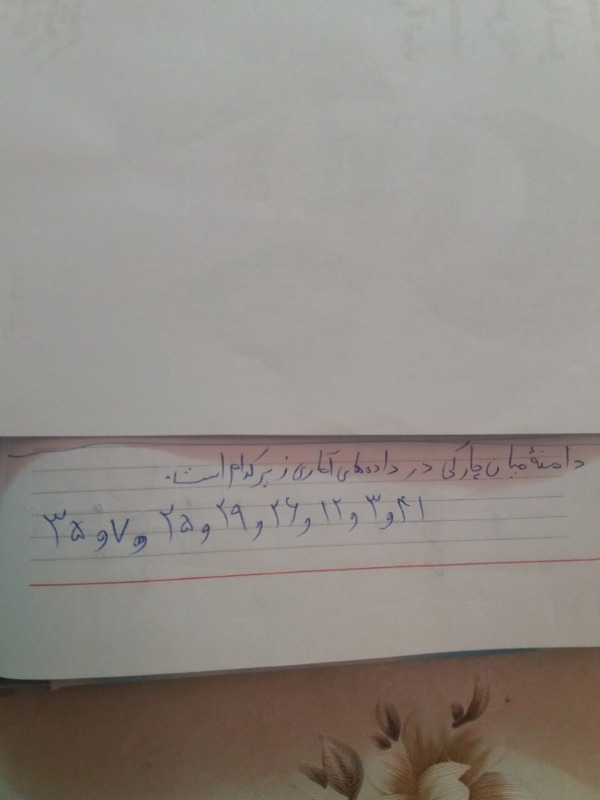 دامنهٔ میان چارکی در داده‌های آماری زیر کدام است.
۴۱ و ۳ و ۱۲ و ۲۶ و ۲۹ و ۲۵ و ۷ و ۳۵